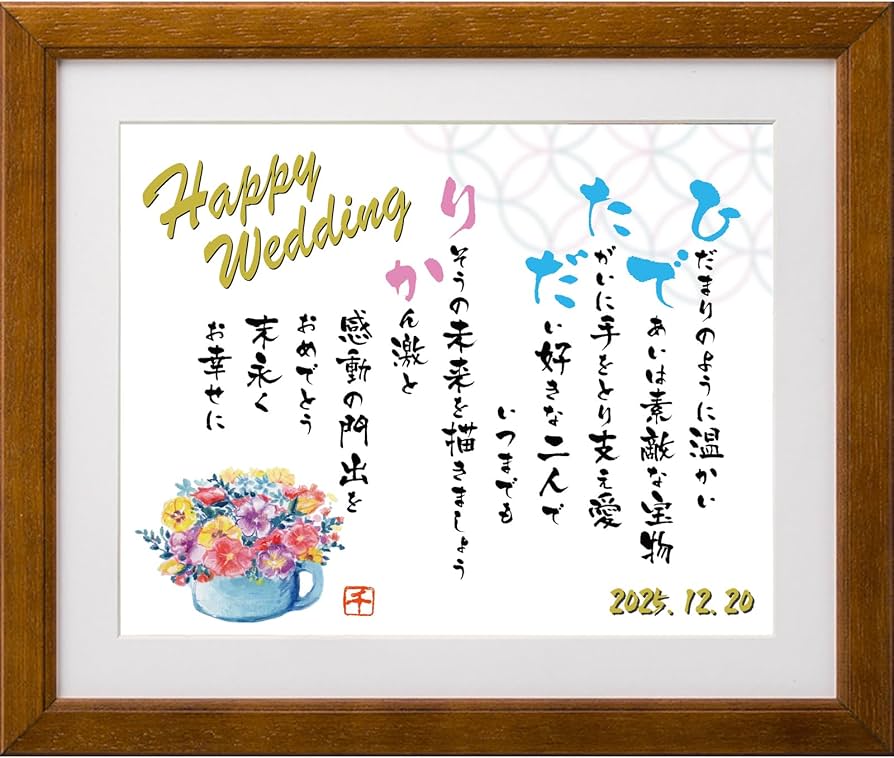 Happy
Wedding
ひだまりのように温かい
であいは素敵な宝物
たがいに手をとり支え愛
だい好きな二人で
いつまでも
りそうの未来を描きましょう
かん激と
感動の門出を
おめでとう
末永く
お幸せに
千
2025.12.20